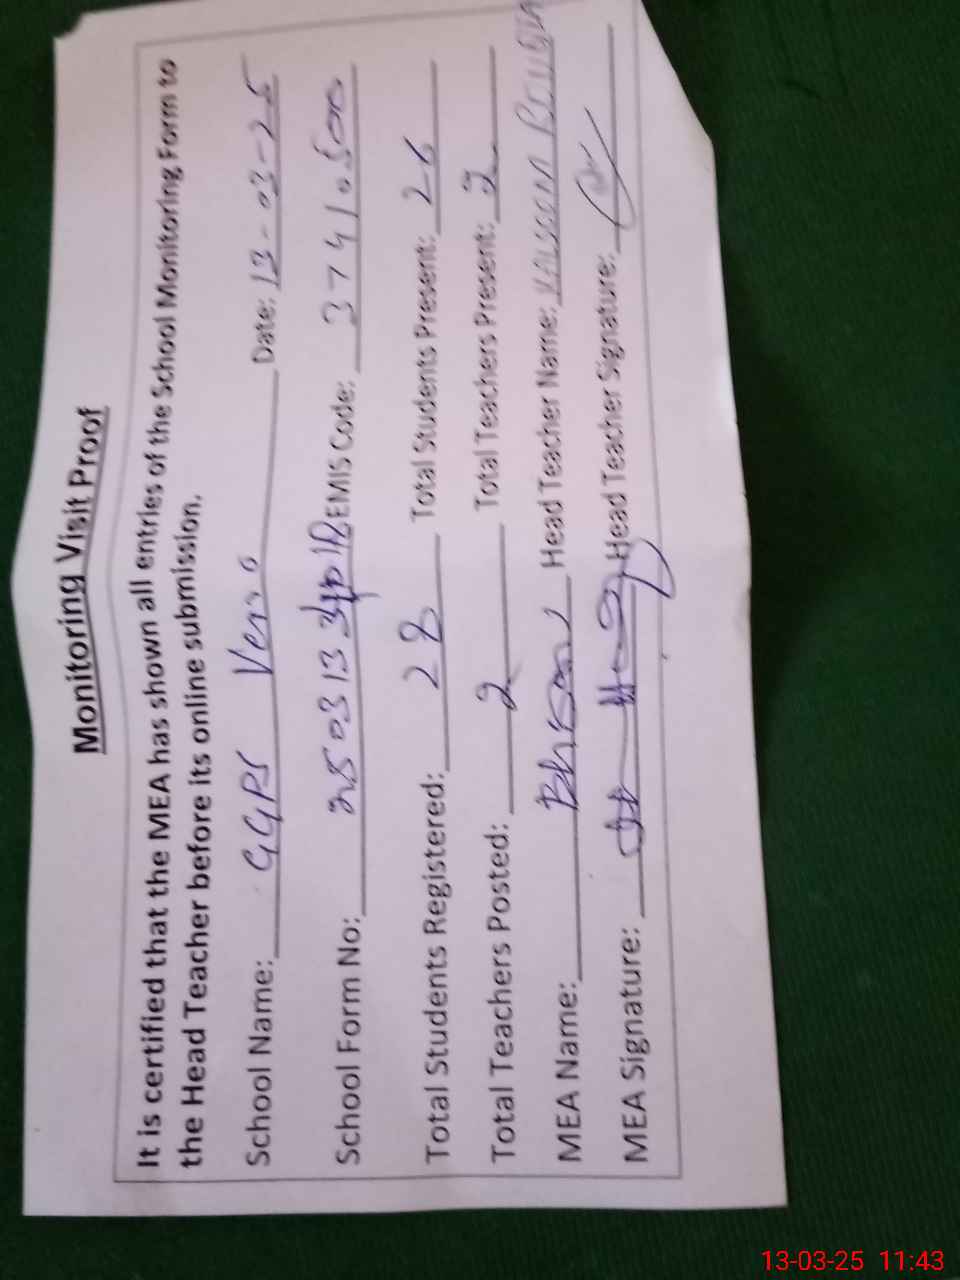 Monitoring Visit Proof
It is certified that the MEA has shown all entries of the School Monitoring Form to
the Head Teacher before its online submission.
School Name: GGPS Vero Date: 13-03-25
School Form No: 2503133 EMIS Code: 37410500
Total Students Registered: 28 Total Students Present: 26
Total Teachers Posted: 2 Total Teachers Present: 2
MEA Name: Head Teacher Name:
MEA Signature: Head Teacher Signature:
13-03-25 11:43